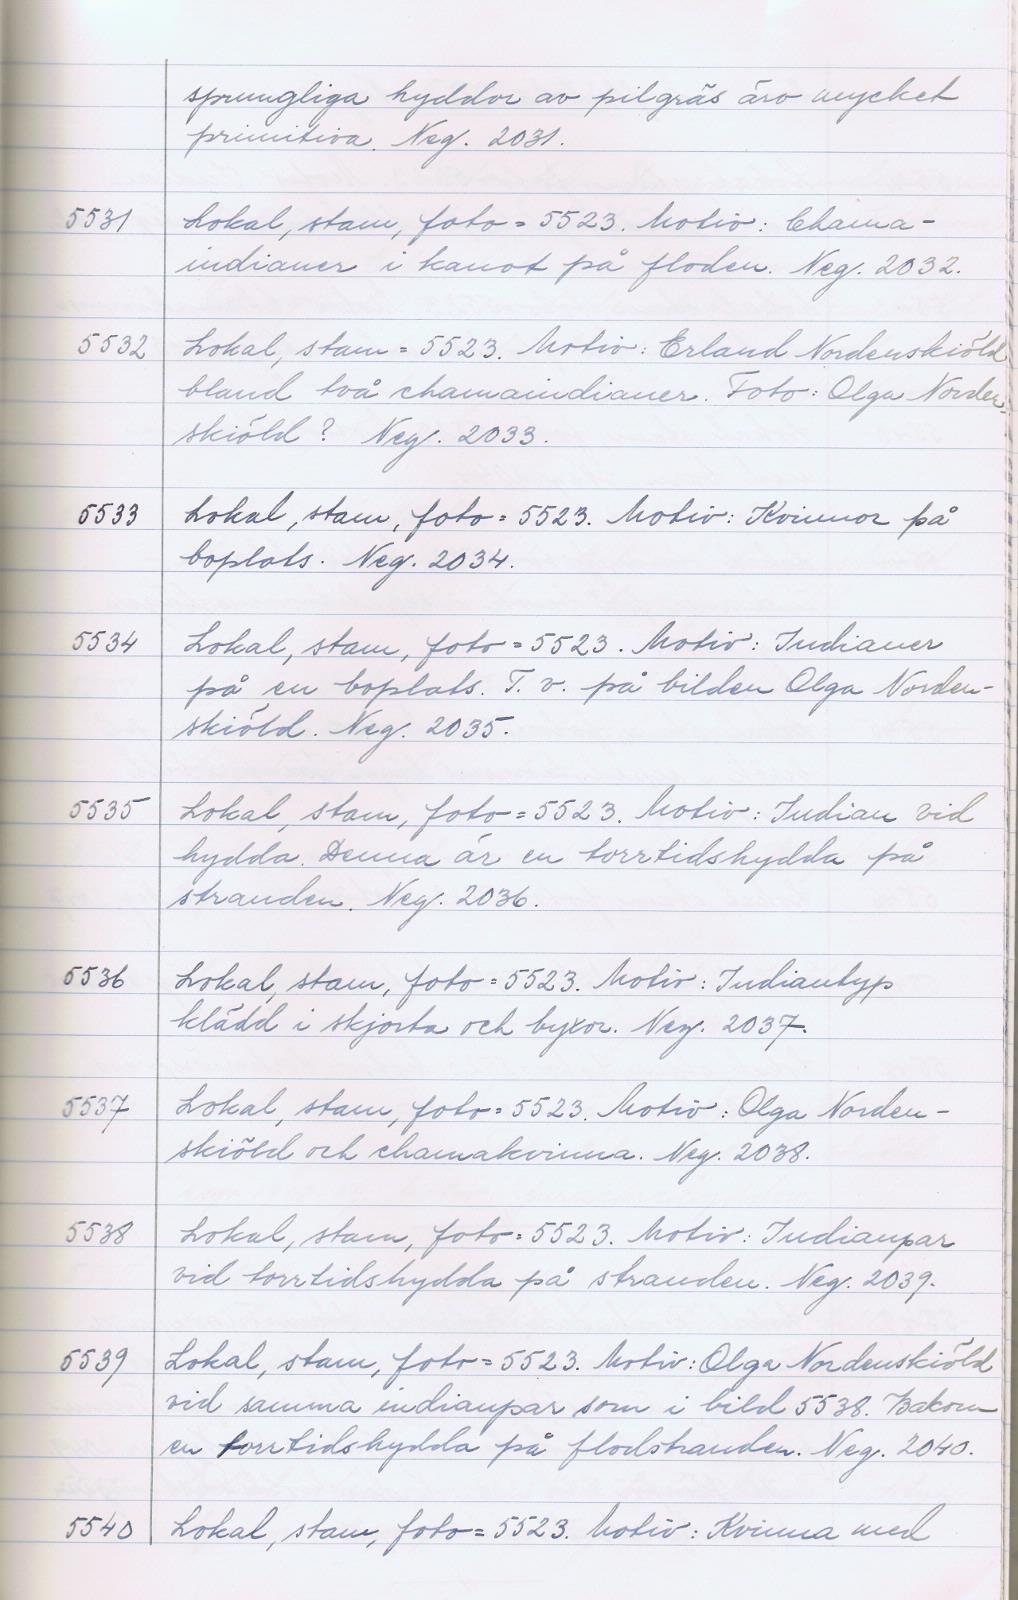 sprungliga hyddor av pilgräs äro mycket
primitiva. Neg. 2031.
5531 Lokal, stam, foto = 5523. Motiv: Chama-
indianer i kanot på floden. Neg. 2032.
5532 Lokal, stam = 5523. Motiv: Erland Nordenskiöld
bland två chamaindianer. Foto: Olga Norden-
skiöld? Neg. 2033.
5533 Lokal, stam, foto = 5523. Motiv: Kvinnor på
boplats. Neg. 2034.
5534 Lokal, stam, foto = 5523. Motiv: Indianer
på en boplats. T. v. på bilden Olga Norden-
skiöld. Neg. 2035.
5535 Lokal, stam, foto = 5523. Motiv: Indian vid
hydda. Denna är en torrtidshydda på
stranden. Neg. 2036.
5536 Lokal, stam, foto = 5523. Motiv: Indiantyp
klädd i skjorta och byxor. Neg. 2037.
5537 Lokal, stam, foto = 5523. Motiv: Olga Norden-
skiöld och chamakvinna. Neg. 2038.
5538 Lokal, stam, foto = 5523. Motiv: Indianpar
vid torrtidshydda på stranden. Neg. 2039.
5539 Lokal, stam, foto = 5523. Motiv: Olga Nordenskiöld
vid samma indianpar som i bild 5538. Bakom
en torrtidshydda på flodstranden. Neg. 2040.
5540 Lokal, stam, foto = 5523. Motiv: Kvinna med